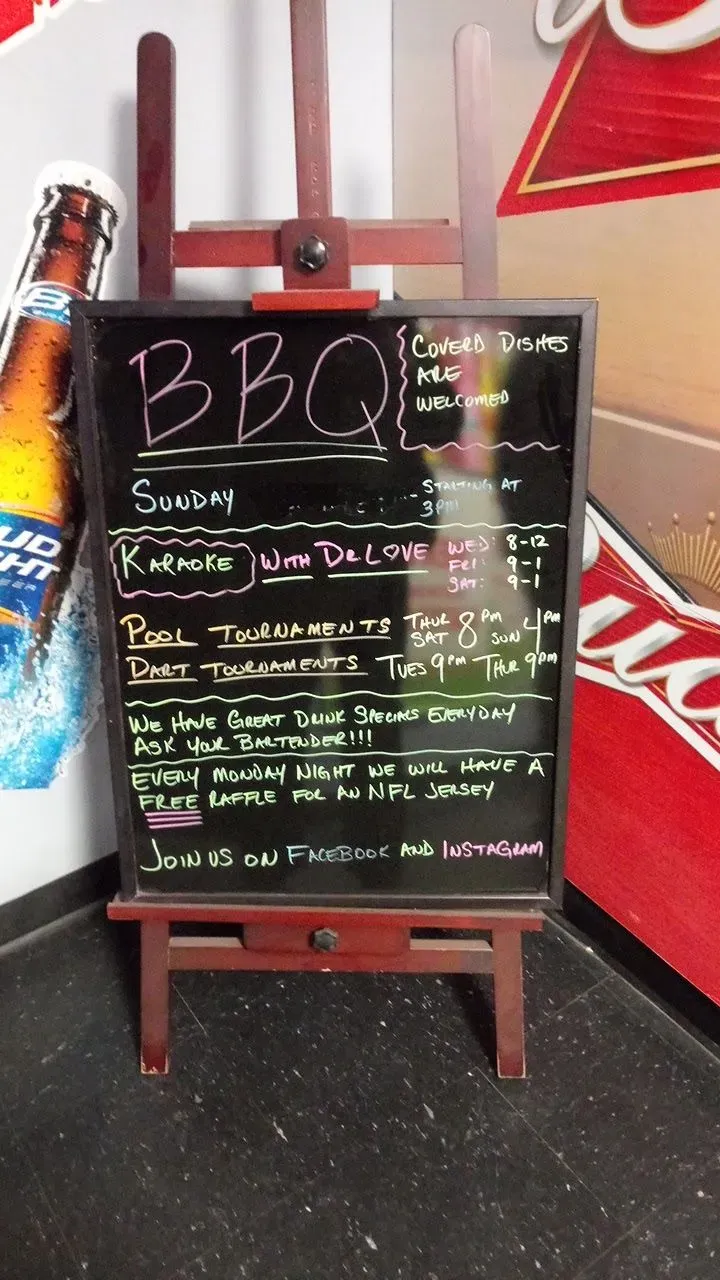 BBQ
COVERD DISHES
ARE
WELCOMED
SUNDAY
STARTING AT
3PM
KARAOKE WITH DR LOVE
WED: 8-12
FRI: 9-1
SAT: 9-1
POOL TOURNAMENTS THUR SAT 8PM SUN 4PM
DART TOURNAMENTS TUES 9PM THUR 9PM
WE HAVE GREAT DRINK SPECIALS EVERYDAY
ASK YOUR BARTENDER!!!
EVERY MONDAY NIGHT WE WILL HAVE A
FREE RAFFLE FOR AN NFL JERSEY
JOIN US ON FACEBOOK AND INSTAGRAM